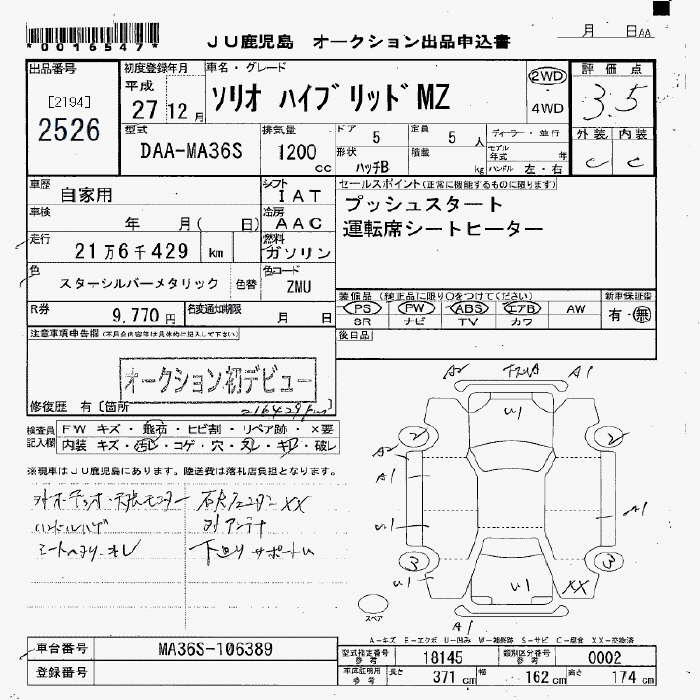 *0016547*
JU鹿児島 オークション出品申込書
月 日AA
出品番号
[2194]
2526
初度登録年月
平成
27 12月
車名・グレード
ソリオ ハイブリッドMZ
2WD
4WD
評価点
3.5
外装 内装
C C
型式
DAA-MA36S
排気量
1200
cc
ドア 5
定員 5人
形状 ハッチB
積載 kg
ディーラー・並行
モデル年式 年
ハンドル 左・右
車歴
自家用
シフト
IAT
車検
年 月( 日)
冷房
AAC
走行
21万6千429 km
燃料
ガソリン
色
スターシルバーメタリック
色替
色コード
ZMU
R券
9,770円
名変通知期限
月 日
セールスポイント(正常に機能するものに限ります)
プッシュスタート
運転席シートヒーター
装備品(純正品に限り○をつけてください)
PS PW ABS エアB AW
SR ナビ TV カワ
新車保証書
有・無
後日品
注意事項申告欄
オークション初デビュー
修復歴 有[箇所 ]
216429km
検査員記入欄
FW キズ・飛石・ヒビ割・リペア跡・×要
内装 キズ・汚レ・コゲ・穴・スレ・キレ・破レ
※現車はJU鹿児島にあります。陸送費は落札店負担となります。
ハンドルハゲ
XX
対アンテナ
下回りサポート
A2 A1
U1
2 2
A2
A1
U1
A1
3 3
U1
U1
XX
A1
スペア
A-キズ E-エクボ U-凹み W-補修跡 S-サビ C-腐食 XX-交換済
車台番号
MA36S-106389
登録番号
型式指定番号 参考
18145
類別区分番号 参考
0002
車庫証明用 参考
長さ 371cm
幅 162cm
高さ 174cm